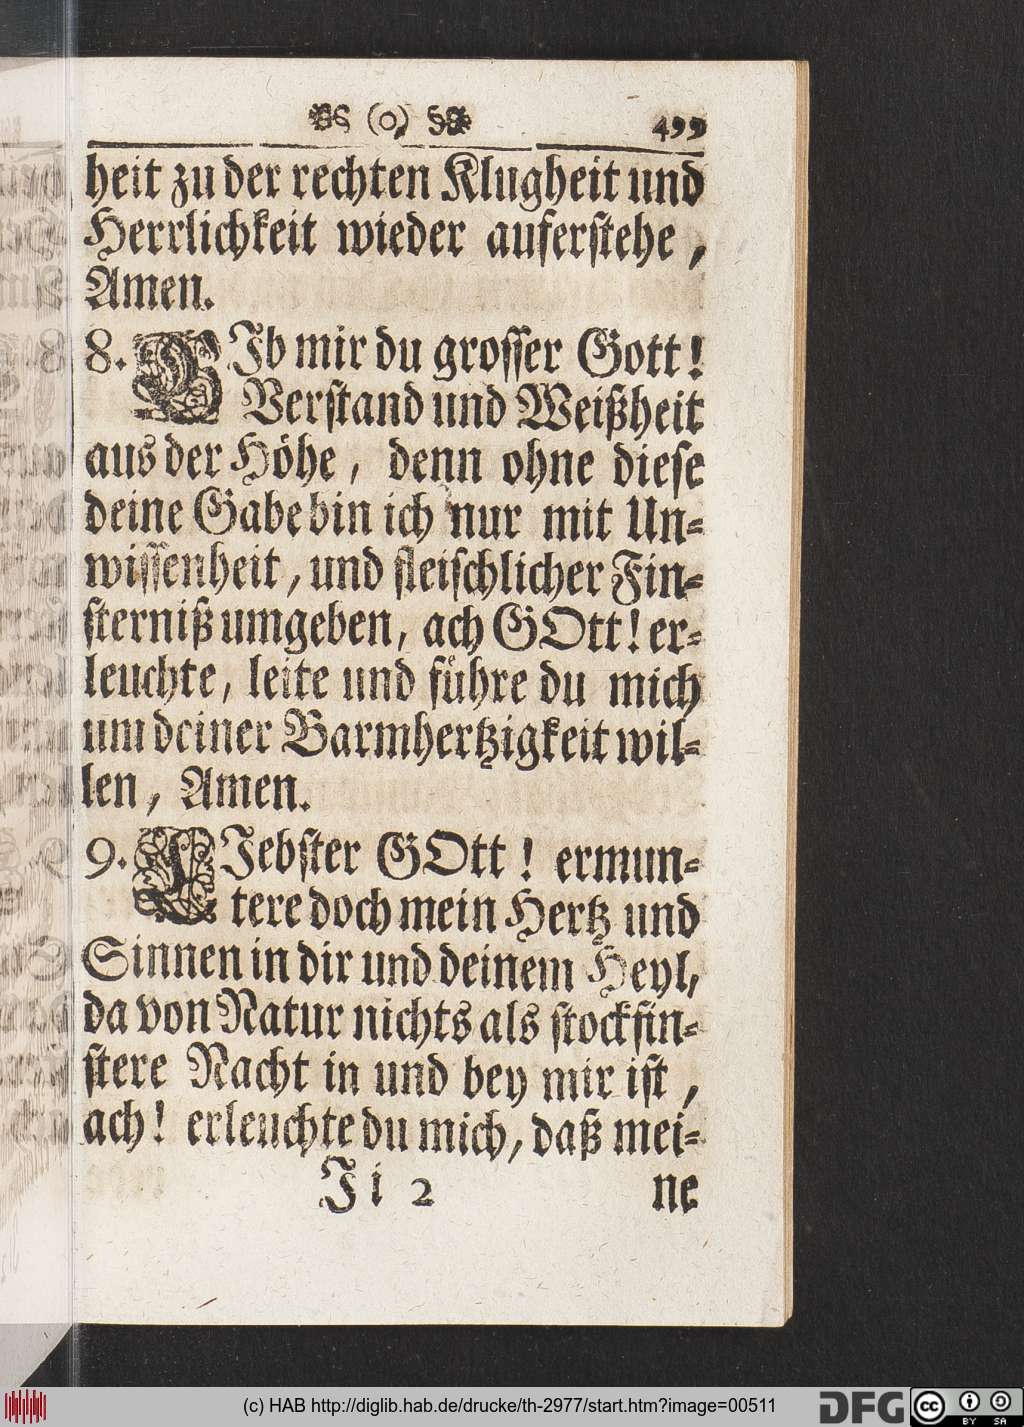 (o) 499
heit zu der rechten Klugheit und
Herrlichkeit wieder auferstehe,
Amen.
8. GIb mir du grosser Gott!
Verstand und Weißheit
aus der Höhe, denn ohne diese
deine Gabe bin ich nur mit Un-
wissenheit, und fleischlicher Fin-
sterniß umgeben, ach GOtt! er-
leuchte, leite und führe du mich
um deiner Barmhertzigkeit wil-
len, Amen.
9. LIebster GOtt! ermun-
tere doch mein Hertz und
Sinnen in dir und deinem Heyl,
da von Natur nichts als stockfin-
stere Nacht in und bey mir ist,
ach! erleuchte du mich, daß mei-
Ji 2 ne
(c) HAB http://diglib.hab.de/drucke/th-2977/start.htm?image=00511
DFG
cc BY SA